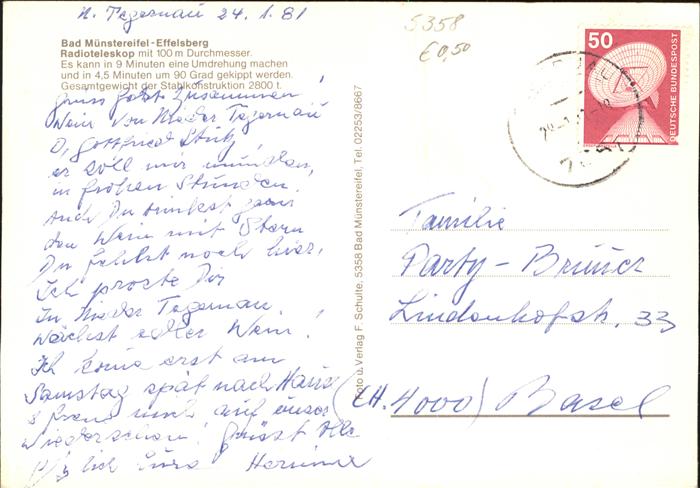 N. Tegernau 24.1.81
5358
€0,50
Bad Münstereifel-Effelsberg
Radioteleskop mit 100 m Durchmesser.
Es kann in 9 Minuten eine Umdrehung machen
und in 4,5 Minuten um 90 Grad gekippt werden.
Gesamtgewicht der Stahlkonstruktion 2800 t.
50
DEUTSCHE BUNDESPOST
Gruss Gott Zusammen!
Wein von Nieder Tegernau
O, Gottfried Stutz,
er soll mir munden,
in frohen Stunden.
Auch Du trinkest gern
den Wein mit Stern
Du fehlst noch hier,
Ich proste Dir
In Nieder Tegernau.
Wächst edler Wein!
Ich komme erst am
Samstag spät nach Haus
& freue mich auf unser
Wiedersehen! Grüsst Alle
lich
Foto u. Verlag F. Schulte, 5358 Bad Münstereifel, Tel. 02253/8667
Familie
Party-Bruner
Lindenhofstr. 33
(CH. 4000) Basel